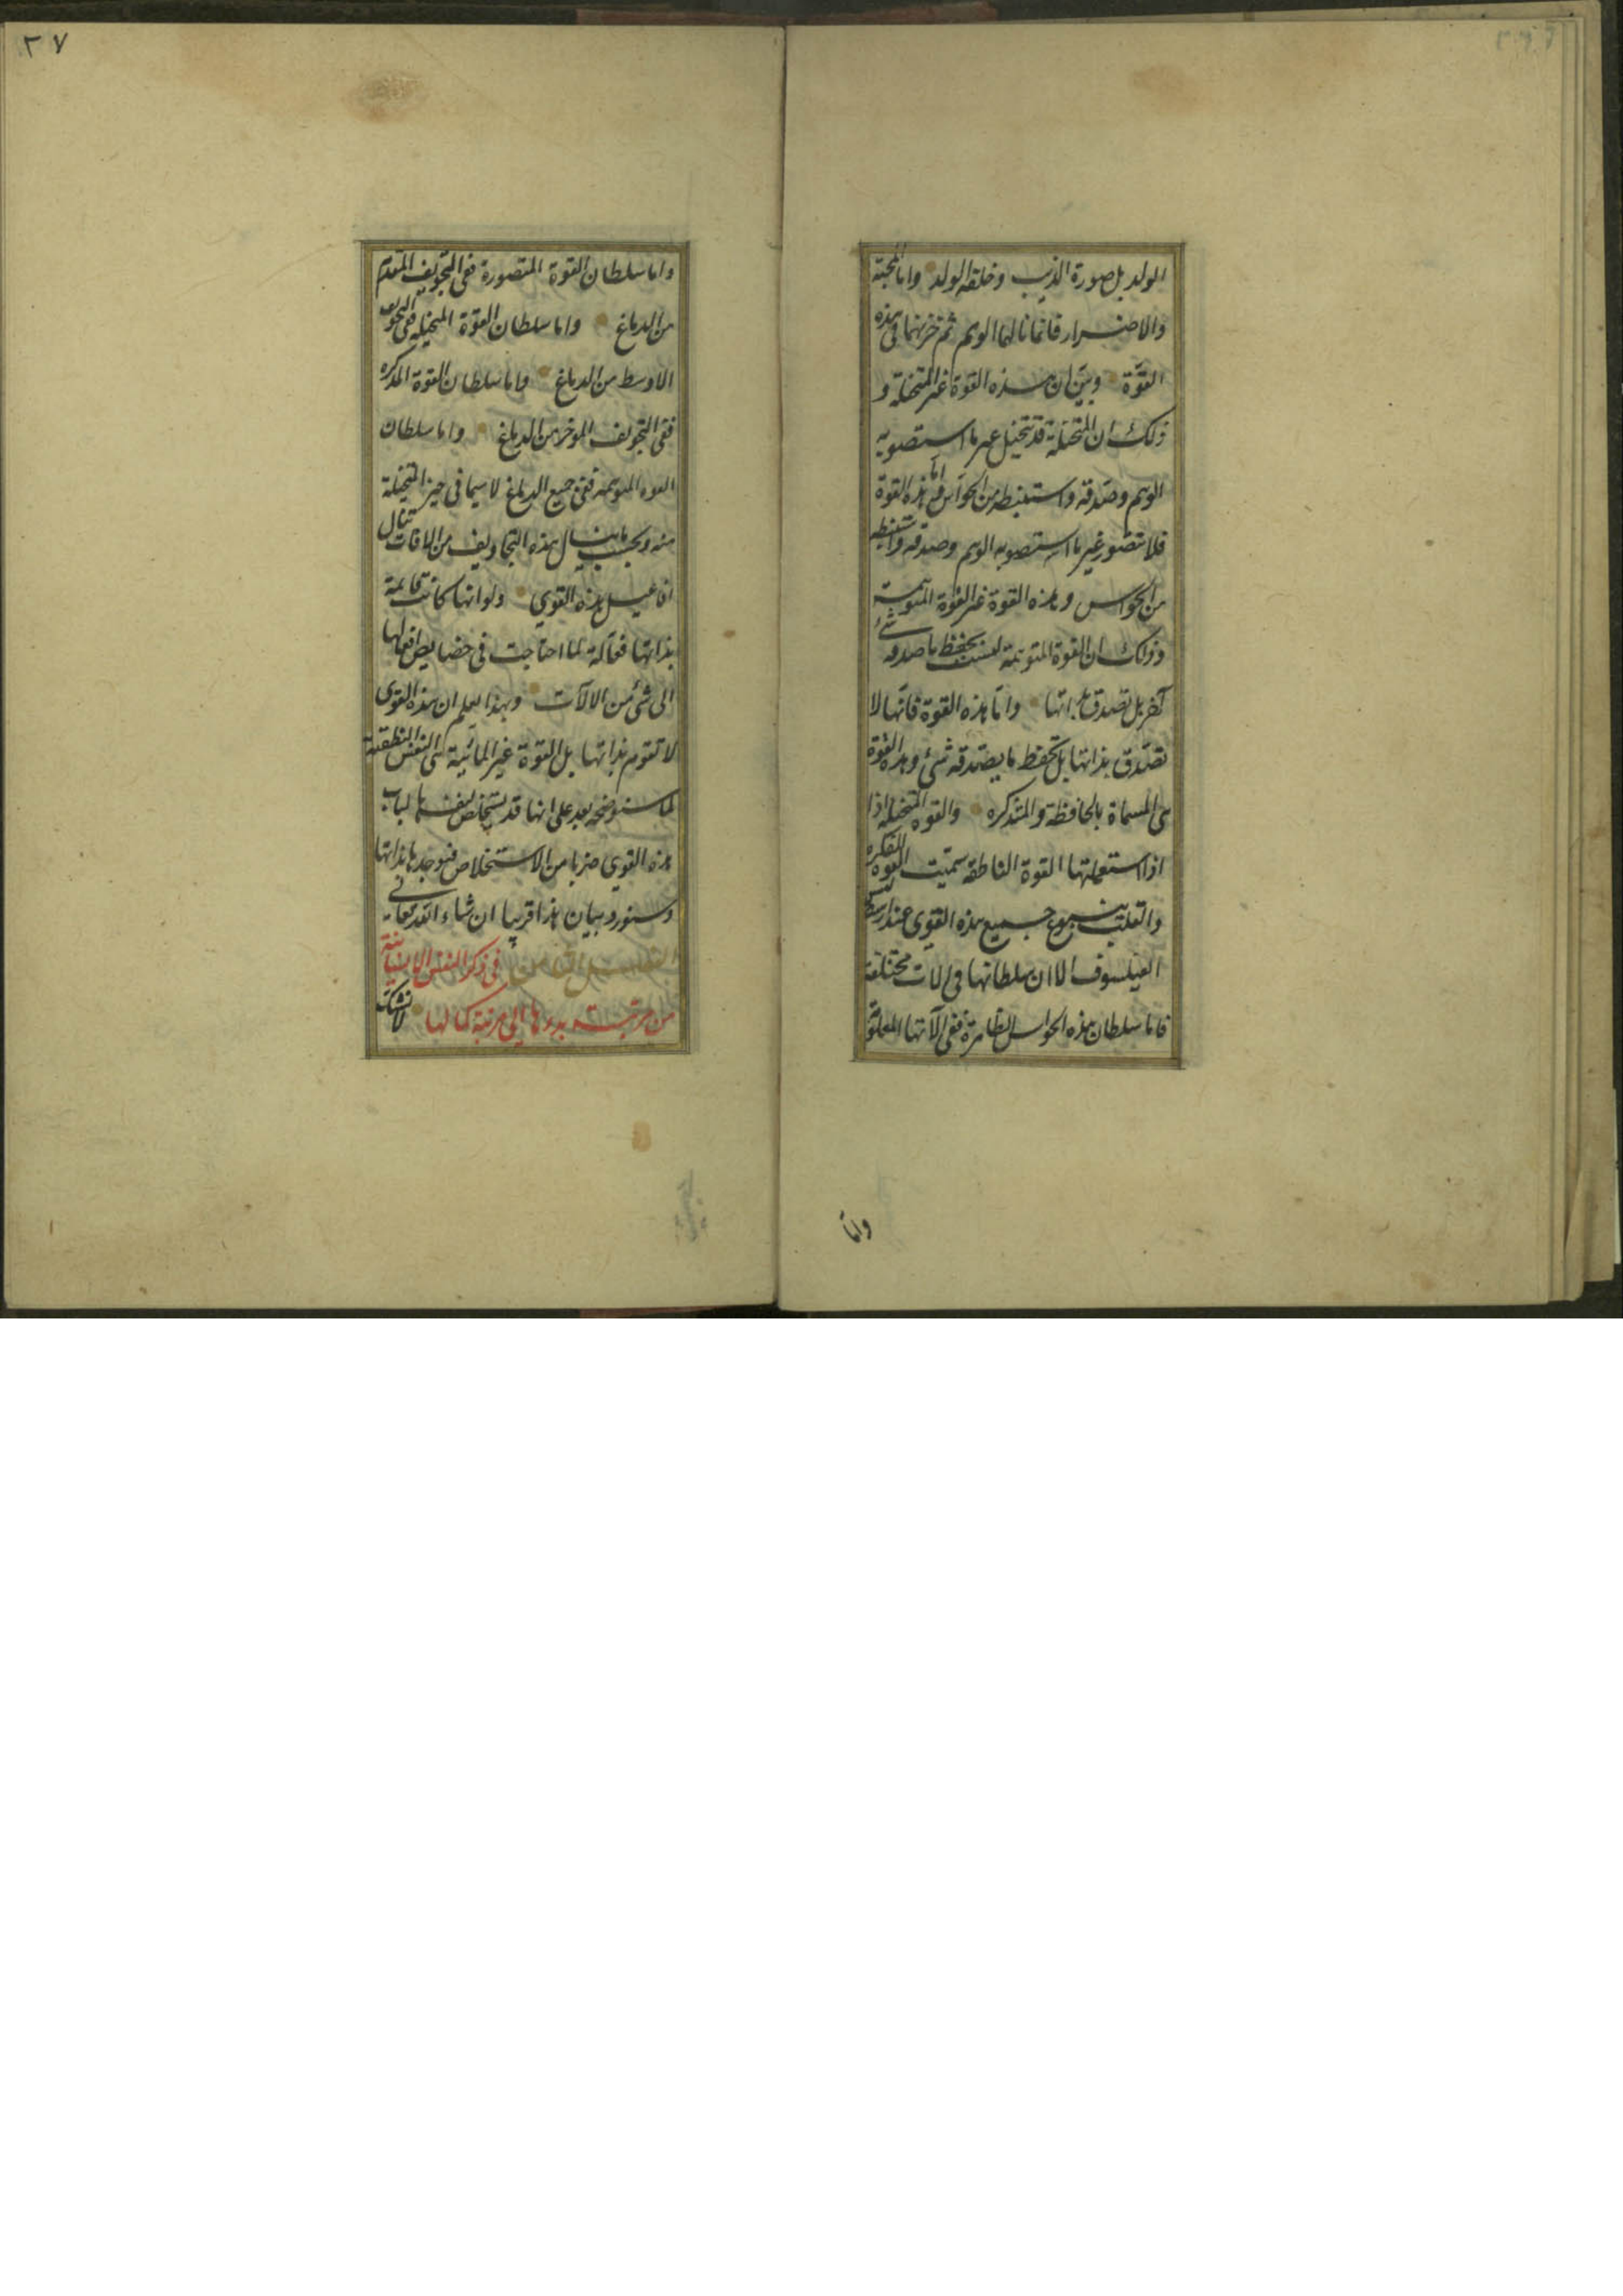 الولد بل صورة الذيب وخلقة الولد واما المحبة
والاضرار فانما نالهما الوهم ثم خزنهما في هذه
القوة وبين ان هذه القوة غير المتخيلة و
ذلك ان المتخيلة قد تتخيل غير ما استصوبه
الوهم وصدقه واستنبطه من الحواس واما هذه القوة
فلا تتصور غير ما استصوبه الوهم وصدقه واستنبطه
من الحواس وهذه القوة غير القوة المتوهمة
وذلك ان القوة المتوهمة ليست بحفظ ما صدقه شئ
آخر بل تصدق بذاتها واما هذه القوة فانها لا
تصدق بذاتها بل تحفظ ما يصدقه شئ وهذه القوة
هى المسماة بالحافظة والمتذكره والقوة المتخيله اذا
اذا استعملتها القوة الناطقه سميت القوة المفكره
والقلب ينبوع جميع هذه القوى عند ارسطو
الفيلسوف الا ان سلطانها فى الات مختلفة
فاما سلطان هذه الحواس الظاهرة ففى آلاتها المعلومة
واما
٢٧
واما سلطان القوة المتصورة ففى التجويف المقدم
من الدماغ واما سلطان القوة المتخيله ففى التجويف
الاوسط من الدماغ واما سلطان القوة المذكره
ففى التجويف الموخر من الدماغ واما سلطان
القوه المتوهمه ففى جميع الدماغ لا سيما فى حيز المتخيلة
منه وبحسب ما ينال هذه التجاويف من الافات تنال
افاعيل هذه القوى ولو انها كانت قائمة
بذاتها فعالة لما احتاجت فى خصايص افعالها
الى شئ من الالآت وبهذا يعلم ان هذه القوى
لا تقوم بذاتها بل القوة غير المائتة هى النفس النطقية
لما سنوضحه بعد على انها قد يستخلص لنفسها لباب
هذه القوى ضربا من الاستخلاص فتوجدها بذاتها
وسنورد بيان هذا قريبا ان شاء الله تعالى
الفصل الثامن فى ذكر النفس الانسانية
من مرتبة بدءها الى مرتبة كمالها لا شك